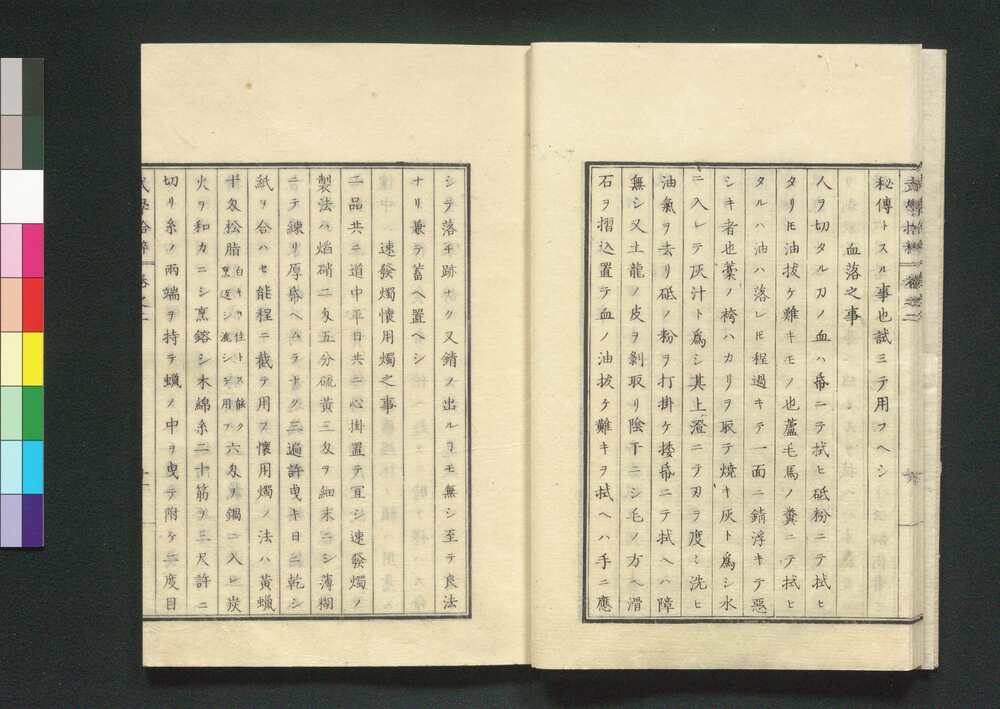 秘傳トスル事也試ミテ用フヘシ
血落之事
人ヲ切タル刀ノ血ハ帋ニテ拭ヒ砥粉ニテ拭ヒ
タリ𪜈油拔ケ難キモノ也蘆毛馬ノ糞ニテ拭ヒ
タルハ油ハ落レ𪜈程過キテ一面ニ錆浮キテ惡
シキ者也藁ノ袴ハカリヲ取テ燒キ灰ト爲シ水
ニ入レテ灰汁ト爲シ其上澄ニテ刃ヲ度〻洗ヒ
油氣ヲ去リ砥ノ粉ヲ打掛ケ捼帋ニテ拭ヘハ障
無シ又土龍ノ皮ヲ剝取リ陰干ニシ毛ノ方ヘ滑
石ヲ摺込置テ血ノ油拔ケ難キヲ拭ヘハ手ニ應
シテ落チ跡ナク又錆ノ出ルヿモ無シ至テ良法
ナリ兼テ蓄ヘ置ヘシ
速發燭懷用燭之事
二品共ニ道中平日共ニ心掛置テ宜シ速發燭ノ
製法ハ焰硝二匁五分硫黃三匁ヲ細末ニシ薄糊
ニテ練リ厚帋ヘムラナク二三遍許曳キ日ニ乾シ
紙ヲ合ハセ能程ニ截テ用フ懷用燭ノ法ハ黃蠟
十匁松脂白キヲ佳トス能ク烹返シ漉シテ用フ六匁ヲ鍋ニ入レ炭
火ヲ和カニシ烹鎔シ木綿糸二十筋ヲ三尺許ニ
切リ糸ノ兩端ヲ持テ蠟ノ中ヲ曳テ附ケ二度目